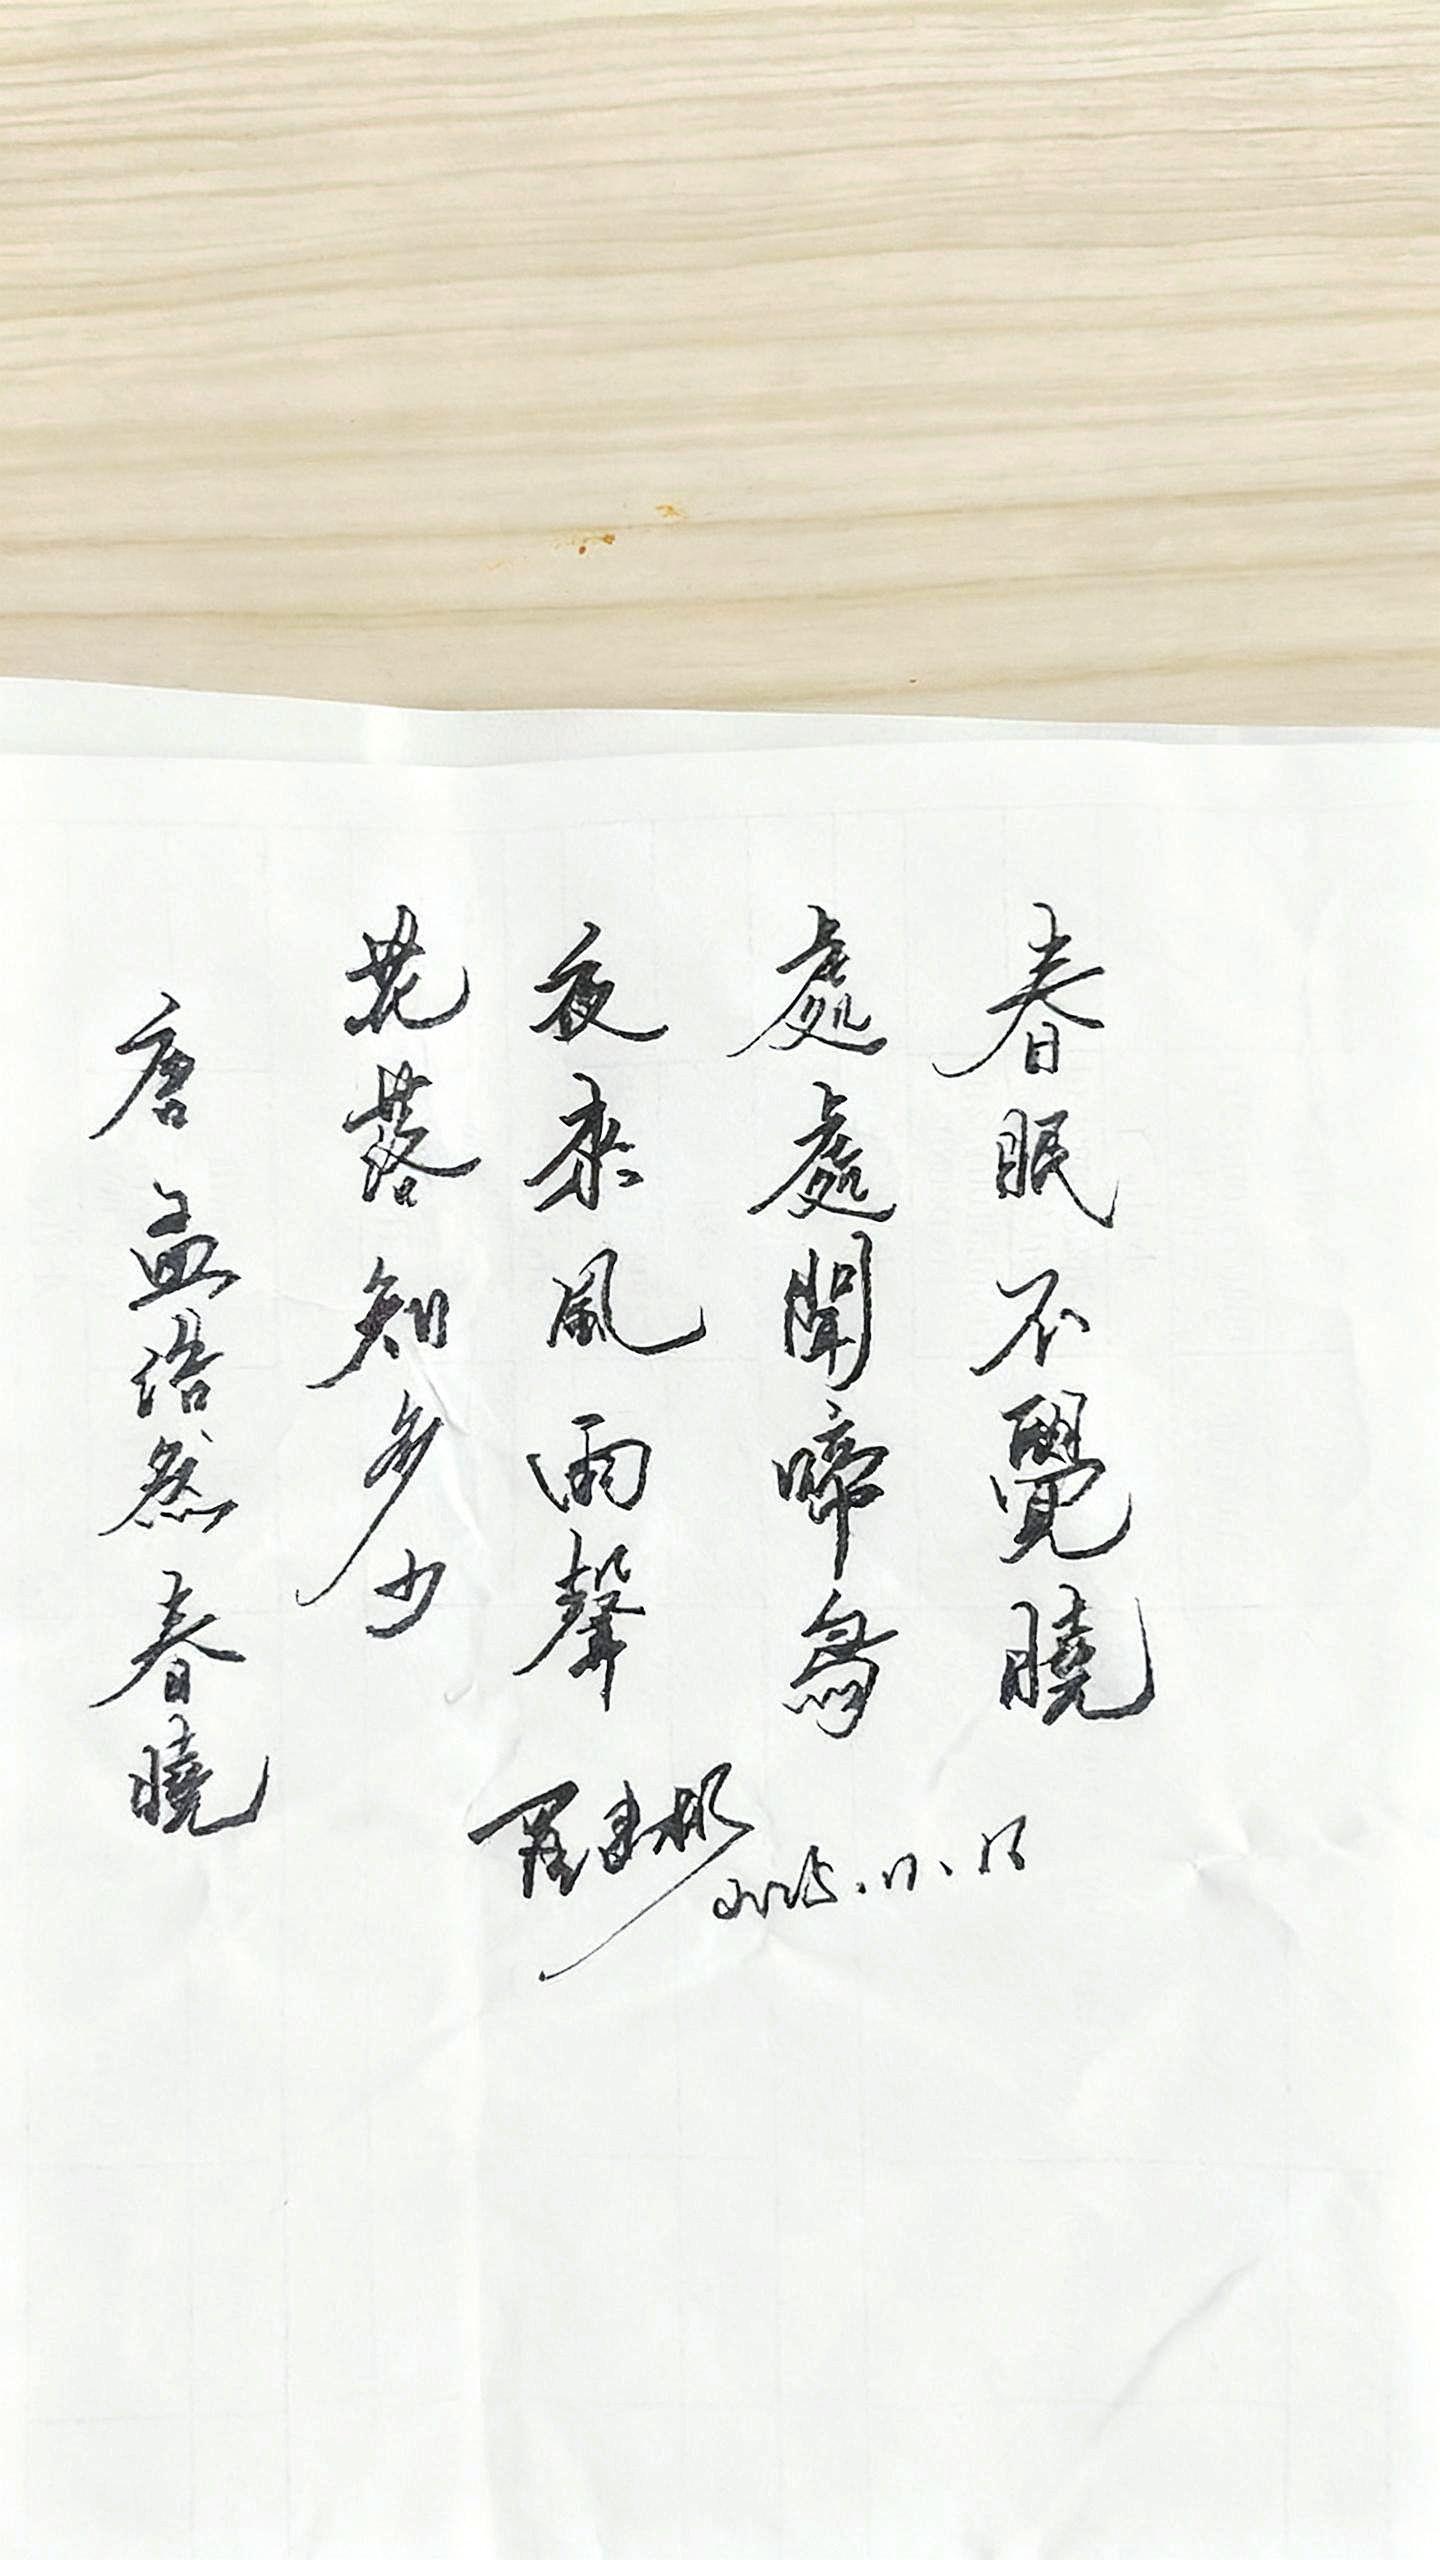 春眠不覺曉
處處聞啼鳥
夜來風雨聲
花落知多少
唐 孟浩然 春曉
羅
2025.11.17